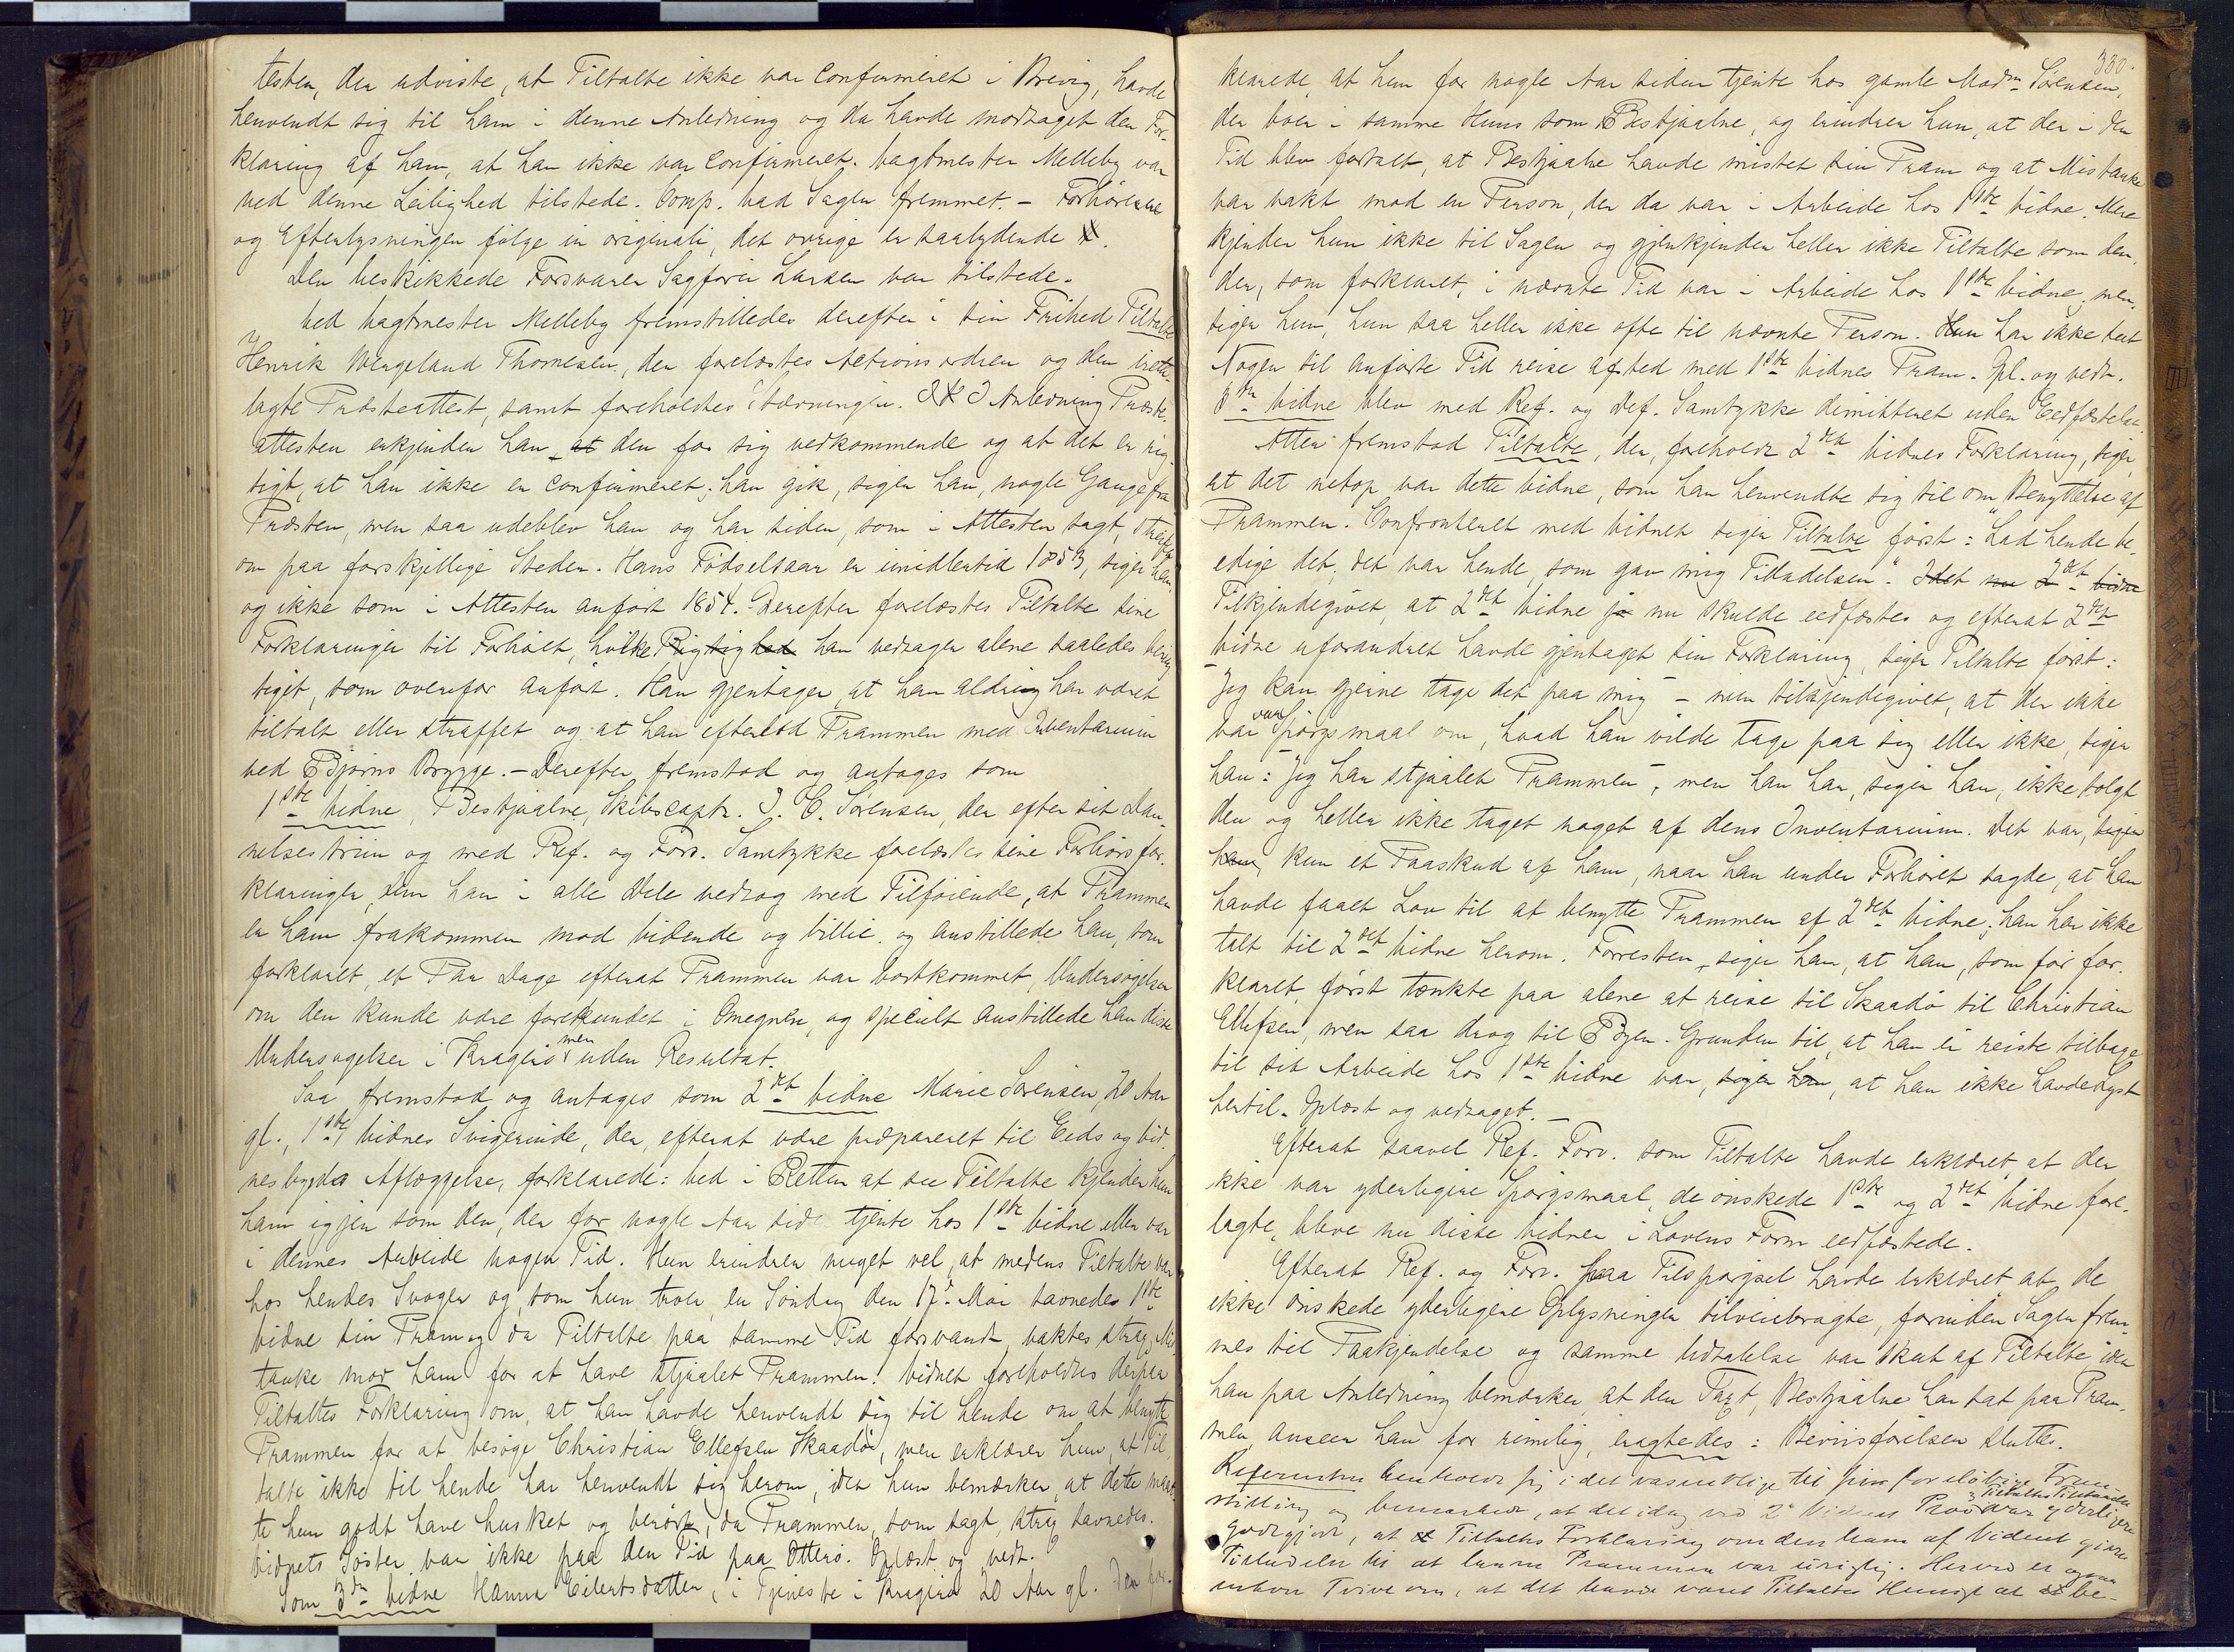 testen, der udviste, at Tiltalte ikke var confirmeret i Brevig, havde
henvendt sig til ham i denne Anledning og da havde modtaget den For-
klaring af ham, at han ikke var confirmeret. Vagtmester Melleby var
ved denne Leilighed tilstede. Comp. bad Sagen fremmet. – Forhørerne
og Efterlysningen følge in originali, det øvrige er saalydende
Den beskikkede Forsvarer Sagfører Larsen var tilstede.
Ved Vagtmester Melleby fremstilledes derefter i sin Frihed Tiltalte
Henrik Wergeland Thomesen, der forelæstes Actionsordren og den irette-
lagte Præsteattest, samt foreholdtes Stevningen. I Anledning Præste-
attesten erkjender han at den for sig vedkommende og at det er rig-
tigt, at han ikke er confirmeret; han gik, siger han, nogle Gange fra
Præsten, men saa udeblev han og har siden, som i Attesten sagt, streifet
om paa forskjellige Steder. Hans Fødselsaar er imidlertid 1853, siger han
og ikke som i Attesten anført 1854. Derefter forelæstes Tiltalte sine
Forklaringer til Forhøret, hvilke Rigtighed han vedtager alene saaledes berig-
tiget, som ovenfor anført. Han gjentager, at han aldrig har været
tiltalt eller straffet og at han efterlod Prammen med Inventarium
ved Bjørns Brygge. – Derefter fremstod og antoges som
1ste Vidne, Bestjaalne, Skibscapt. J. C. Sørensen, der efter sit Dan-
nelsestrin og med Ref. og Forv. Samtykke forelæstes sine Forhørsfor-
klaringer, dem han i alle Dele vedtog med Tilføiende, at Prammen
er ham frakommen mod Vidende og Villie og anstillede han, som
forklaret, et Par Dage efterat Prammen var bortkommet, Undersøgelser
om den kunde være forekundet i Omegnen, og specielt anstillede han disse
Undersøgelser i Kragerø men uden Resultat.
Saa fremstod og antoges som 2det Vidne Marie Sørensen, 20 Aar
gl., 1ste Vidnes Svigerinde, der, efterat være præpareret til Eeds og Vid-
nesbyrds Aflæggelse, forklarede: Ved i Retten at see Tiltalte kjender hun
ham igjen som den, der for nogle Aar sid tjente hos 1ste Vidne eller var
i dennes Arbeide nogen Tid. Hun erindrer meget vel, at medens Tiltalte var
hos hendes Svoger og, som hun troer, en Søndag den 17de Mai savnedes 1ste
Vidne sin Pram og da Tiltalte paa samme Tid forsvandt, vaktes strax Mis-
tanke mod ham for at have stjaalet Prammen. Vidnet foreholdtes derpaa
Tiltaltes Forklaring om, at han havde henvendt sig til hende om at benytte
Prammen for at besøge Christian Ellefsen Skaadø, men erklærer hun, at Til-
talte ikke til hende har henvendt sig herom, idet hun bemærker, at dette maat-
te hun godt have husket og berørt, da Prammen, som sagt, strax savnedes.
Vidnets Søster var ikke paa den Tid paa Otterø. Oplæst og vedt.
Som 3die Vidne Hanna Eilertsdatter, i Tjeneste i Kragerø 20 Aar gl. Den for-
330.
klarede, at hun for nogle Aar siden tjente hos gamle Madm Sørensen,
der boer i samme Huus som Bestjaalne, og erindrer hun, at der i den
Tid blev fortalt, at Bestjaalne havde mistet sin Pram og at Mistanke
var vakt mod en Person, der da var i Arbeide hos 1ste Vidne. Mere
kjender hun ikke til Sagen og gjenkjender heller ikke Tiltalte som den-
der, som forklaret, i nævnte Tid var i Arbeide hos 1ste Vidne, men,
siger hun, hun saa heller ikke ofte til nævnte Person. Hun har ikke seet
Nogen til anførte Tid reise afsted med 1ste Vidnes Pram. Opl. og vedt.
3die Vidne blev med Ref. og Def. Samtykke dimitteret uden Eedfæstelse.
Atter fremstod Tiltalte, der, foreholdt 2det Vidnes Forklaring, siger,
at det netop var dette Vidne, som han henvendte sig til om Benyttelse af
Prammen. Confronteret med Vidnet siger Tiltalte først: "Lad hende be-
edige det, det var hende, som gav mig Tilladelsen". Idet nu 2det Vidne
Tilkjendegivet, at 2det Vidne jo nu skulde eedfæstes og efterat 2det
Vidne uforandret havde gjentaget sin Forklaring, siger Tiltalte først:
"Jeg kan gjerne tage det paa mig" – men tilkjendegivet, at der ikke
var var Spørgsmaal om, hvad han vilde tage paa sig eller ikke, siger
han: "Jeg har stjaalet Prammen", men han har, siger han, ikke solgt
den og heller ikke taget noget af dens Inventarium. Det var, siger
han, kun et Paaskud af ham, naar han under Forhøret sagde, at han
havde faaet Lov til at benytte Prammen af 2det Vidne; han har ikke
talt til 2det Vidne herom. Forresten siger han, at han, som før for-
klaret, først tænkte paa alene at reise til Skaadø til Christian
Ellefsen, men saa drog til Byen. Grunden til, at han ei reiste tilbage
til sit Arbeide hos 1ste Vidne var, siger han, at han ikke havde Lyst
hertil. Oplæst og vedtaget. –
Efterat saavel Ref. Forv. som Tiltalte havde erklæret at der
ikke var yderligere Spørgsmaal, de ønskede 1ste og 2det Vidne fore-
lagte, bleve nu disse Vidner i Lovens Form eedfæstede.
Efterat Ref. og Forv. paa Tilspørgsel havde erklæret at de
ikke ønskede yderligere Oplysninger tilveiebragte, forinden Sagen frem-
mes til Paakjendelse og samme Udtalelse var skeet af Tiltalte, idet
han paa Anledning bemærker at den Taxt, Bestjaalne har sat paa Pram-
men, anseer han for rimelig, eragtedes: Beviisførelsen sluttes.
Referenten henholdt sig i det væsentlige til sin foreløbige Frem-
stilling og bemærkede, at det idag ved 2det Vidnes Prov & Tiltaltes Tilstaaelse var yderligere
godtgjort, at Tiltaltes Forklaring om den ham af Vidnet givne
Tilladelse til at laane Prammen var urigtig. Herved er ogsaa
enhver Tvivl om, at det havde været Tiltaltes Hensigt at be-